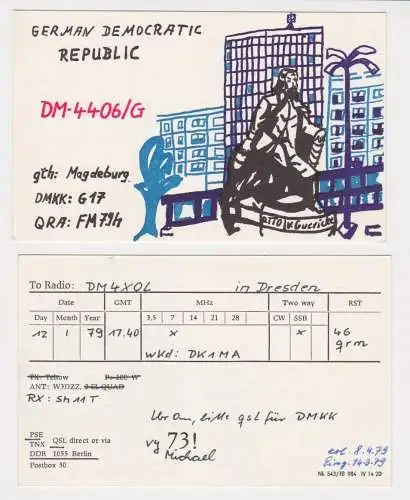 GERMAN DEMOCRATIC
REPUBLIC
DM-4406/G
qth: Magdeburg
DMKK: G17
QRA: FM79h
OTTO v. Guericke
To Radio: DM4XOL in Dresden
Date GMT MHz Two way RST
Day Month Year 3,5 7 14 21 28 CW SSB
12 1 79 17.40 x x 46
qrm
wkd: DK1MA
TX: Teltow P: 200 W
ANT: W3DZZ. 2 EL QUAD
RX: SH11T
Ur Om, bitte qsl für DMKK
PSE
TNX QSL direct or via
DDR 1055 Berlin
Postbox 30
vy 73!
Michael
erl. 8.4.79
Eing. 14.3.79
NR 543/78 984 IV 14 20